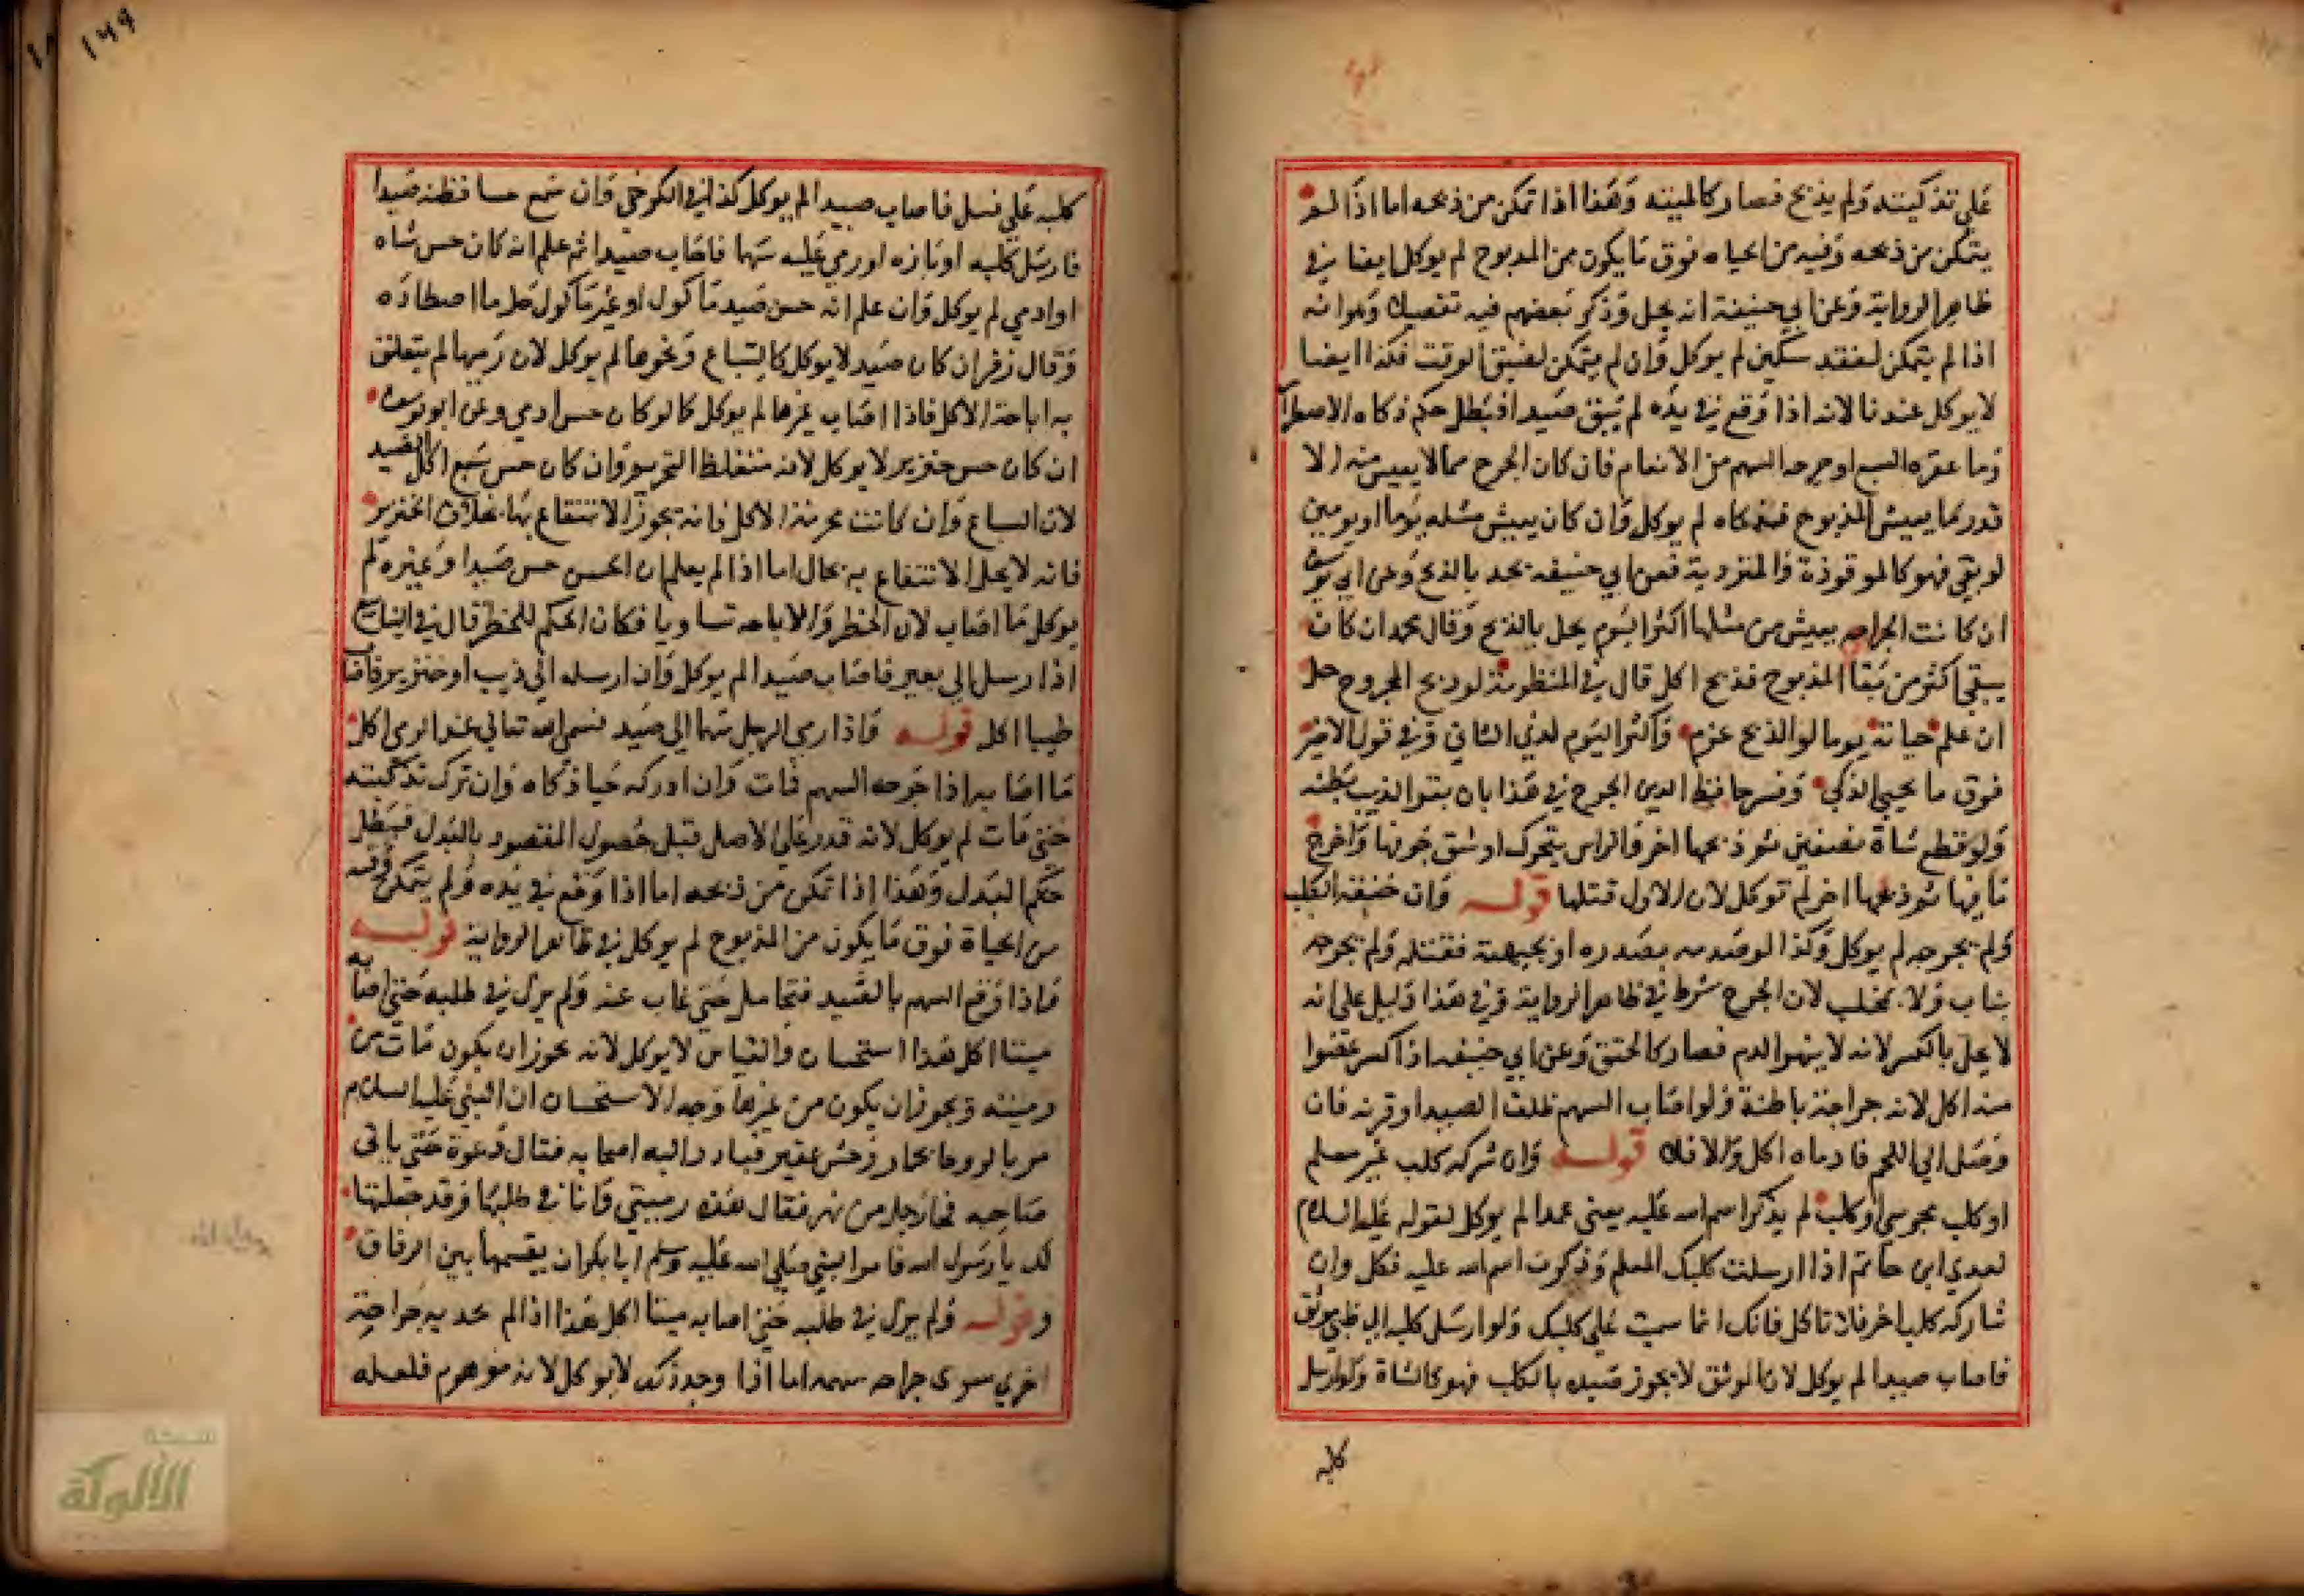 على تذكيته ولم يذبح فصار كالميته وهذا اذا تمكن من ذبحه اما اذا لم
يتمكن من ذبحه وفيه من الحياه فوق ما يكون من المدبوح لم يوكل ايضا في
ظاهر الرواية وعن ابي حنيفة انه يحل وذكر بعضهم فيه تفصيلا وهو انه
اذا لم يتمكن لفقد سكين لم يوكل وان لم يتمكن لضيق الوقت فكذا ايضا
لا يوكل عندنا لانه اذا وقع في يده لم يبق صيدا فبطل حكم ذكاه الاضطرا
وما عقره السبع او جرحه السهم من الانعام فان كان الجرح مما لا يعيش منه الا
قدر ما يعيش المذبوح فذكاه لم يوكل وان كان يعيش مثله يوما او يومين
لو بقي فهو كالموقوذة والمتردية فعن ابي حنيفه يحد بالذبح وعن ابي يوسف
ان كانت الجراحه يعيش من مثلها اكثر اليوم يحل بالذبح وقال محمد ان كان
يبقى اكثر من بقا المذبوح فذبح اكل قال في المنظومة لو ذبح المجروح حل
ان علم حياته يوما لو الذبح عزم واكثر اليوم لدي الثاني وفي قول الاخير
فوق ما يحيى الذكي وفسر حافظ الدين الجرح في هذا بان بقر الذيب بطنه
ولو قطع شاة نصفين ثم ذبحها اخر والراس يتحرك او شق جوفها واخرج
ما فيها ثم ذبحها اخر لم توكل لان الاول قتلها قوله وان خنقه الكلب
ولم يجرحه لم يوكل وكذا لو صدمه بصدره او بجبهته فقتله ولم يجرحه
بناب ولا بمخلب لان الجرح شرط في ظاهر الرواية وفي هذا دليل على انه
لا يحل بالكسر لانه لا ينهر الدم فصار كالخنق وعن ابي حنيفه اذا كسر عضوا
منه اكل لانه جراحة باطنة ولو اصاب السهم ظلف الصيد او قرنه فان
وصل الي اللحم فادماه اكل والا فلا قوله وان شركه كلب غير معلم
او كلب مجوسي او كلب لم يذكر اسم الله عليه يعني عمدا لم يوكل لقوله عليه السلام
لعدي ابن حاتم اذا ارسلت كلبك المعلم وذكرت اسم الله عليه فكل وان
شاركه كلب اخر فلا تاكل فانك انما سميت على كلبك ولو ارسل كلبه الى ظبي موثق
فاصاب صيدا لم يوكل لان الموثق لا يجوز صيده بالكلب فهو كالشاة ولو ارسل
كلبه
١٤٩
كلبه على فيل فاصاب صيدا لم يوكل كذا في الكرخي وان سمع حسا فظنه صيدا
فارسل كلبه او بازه او رمي عليه سهما فاصاب صيدا ثم علم انه كان حس شاه
او ادمي لم يوكل وان علم انه حس صيد ماكول او غير ماكول حل ما اصطاده
وقال زفر ان كان صيد لا يوكل كالسباع ونحوها لم يوكل لان رميها لم يتعلق
به اباحة الاكل فاذا اصاب غيرها لم يوكل كما لو كان حس ادمي وعن ابو يوسف
ان كان حس خنزير لا يوكل لانه متغلظ التحريم وان كان حس سبع اكل الصيد
لان السباع وان كانت محرمة الاكل فانه يجوز الانتفاع بها بخلاف الخنزير
فانه لا يحل الانتفاع به بحال اما اذا لم يعلم ان الحس حس صيد او غيره لم
يوكل ما اصاب لان الحظر والاباحه تساويا فكان الحكم للحظر قال في الينابيع
اذا ارسل الي بعير فاصاب صيدا لم يوكل وان ارسله الي ذيب او خنزير فاصاب
ظبيا اكل قوله واذا رمى الرجل سهما الى صيد فسمى الله تعالي عند الرمى اكل
ما اصابه اذا جرحه السهم فمات وان ادركه حيا ذكاه وان ترك تذكيته
حتى مات لم يوكل لانه قدر على الاصل قبل حصول المقصود بالبدل فبطل
حكم البدل وهذا اذا تمكن من ذبحه اما اذا وقع في يده ولم يتمكن وفيه
من الحياة فوق ما يكون من المذبوح لم يوكل في ظاهر الرواية قوله
فاذا وقع السهم بالصيد فتحامل حتى غاب عنه ولم يزل في طلبه حتى اصابه
ميتا اكل هذا استحسان والقياس لا يوكل لانه يجوز ان يكون مات من
رميته ويجوز ان يكون من غيرها وجه الاستحسان ان النبي عليه السلام
مر بالروحا بحمار وحش عقير فبادر اليه اصحابه فقال دعوة حتى ياتى
صاحبه فجا رجل من نهر فقال هذه رميتي وانا في طلبها وقد جعلتها
لك يا رسول الله فامر النبي صلي الله عليه وسلم ابا بكر ان يقسمها بين الرفاق
وقوله ولم يزل في طلبه حتى اصابه ميتا اكل هذا اذا لم يجد به جراحة
اخري سوى جراحه سهمه اما اذا وجد ذلك لا يوكل لانه موهوم فلعله
شبكة
الألوكة